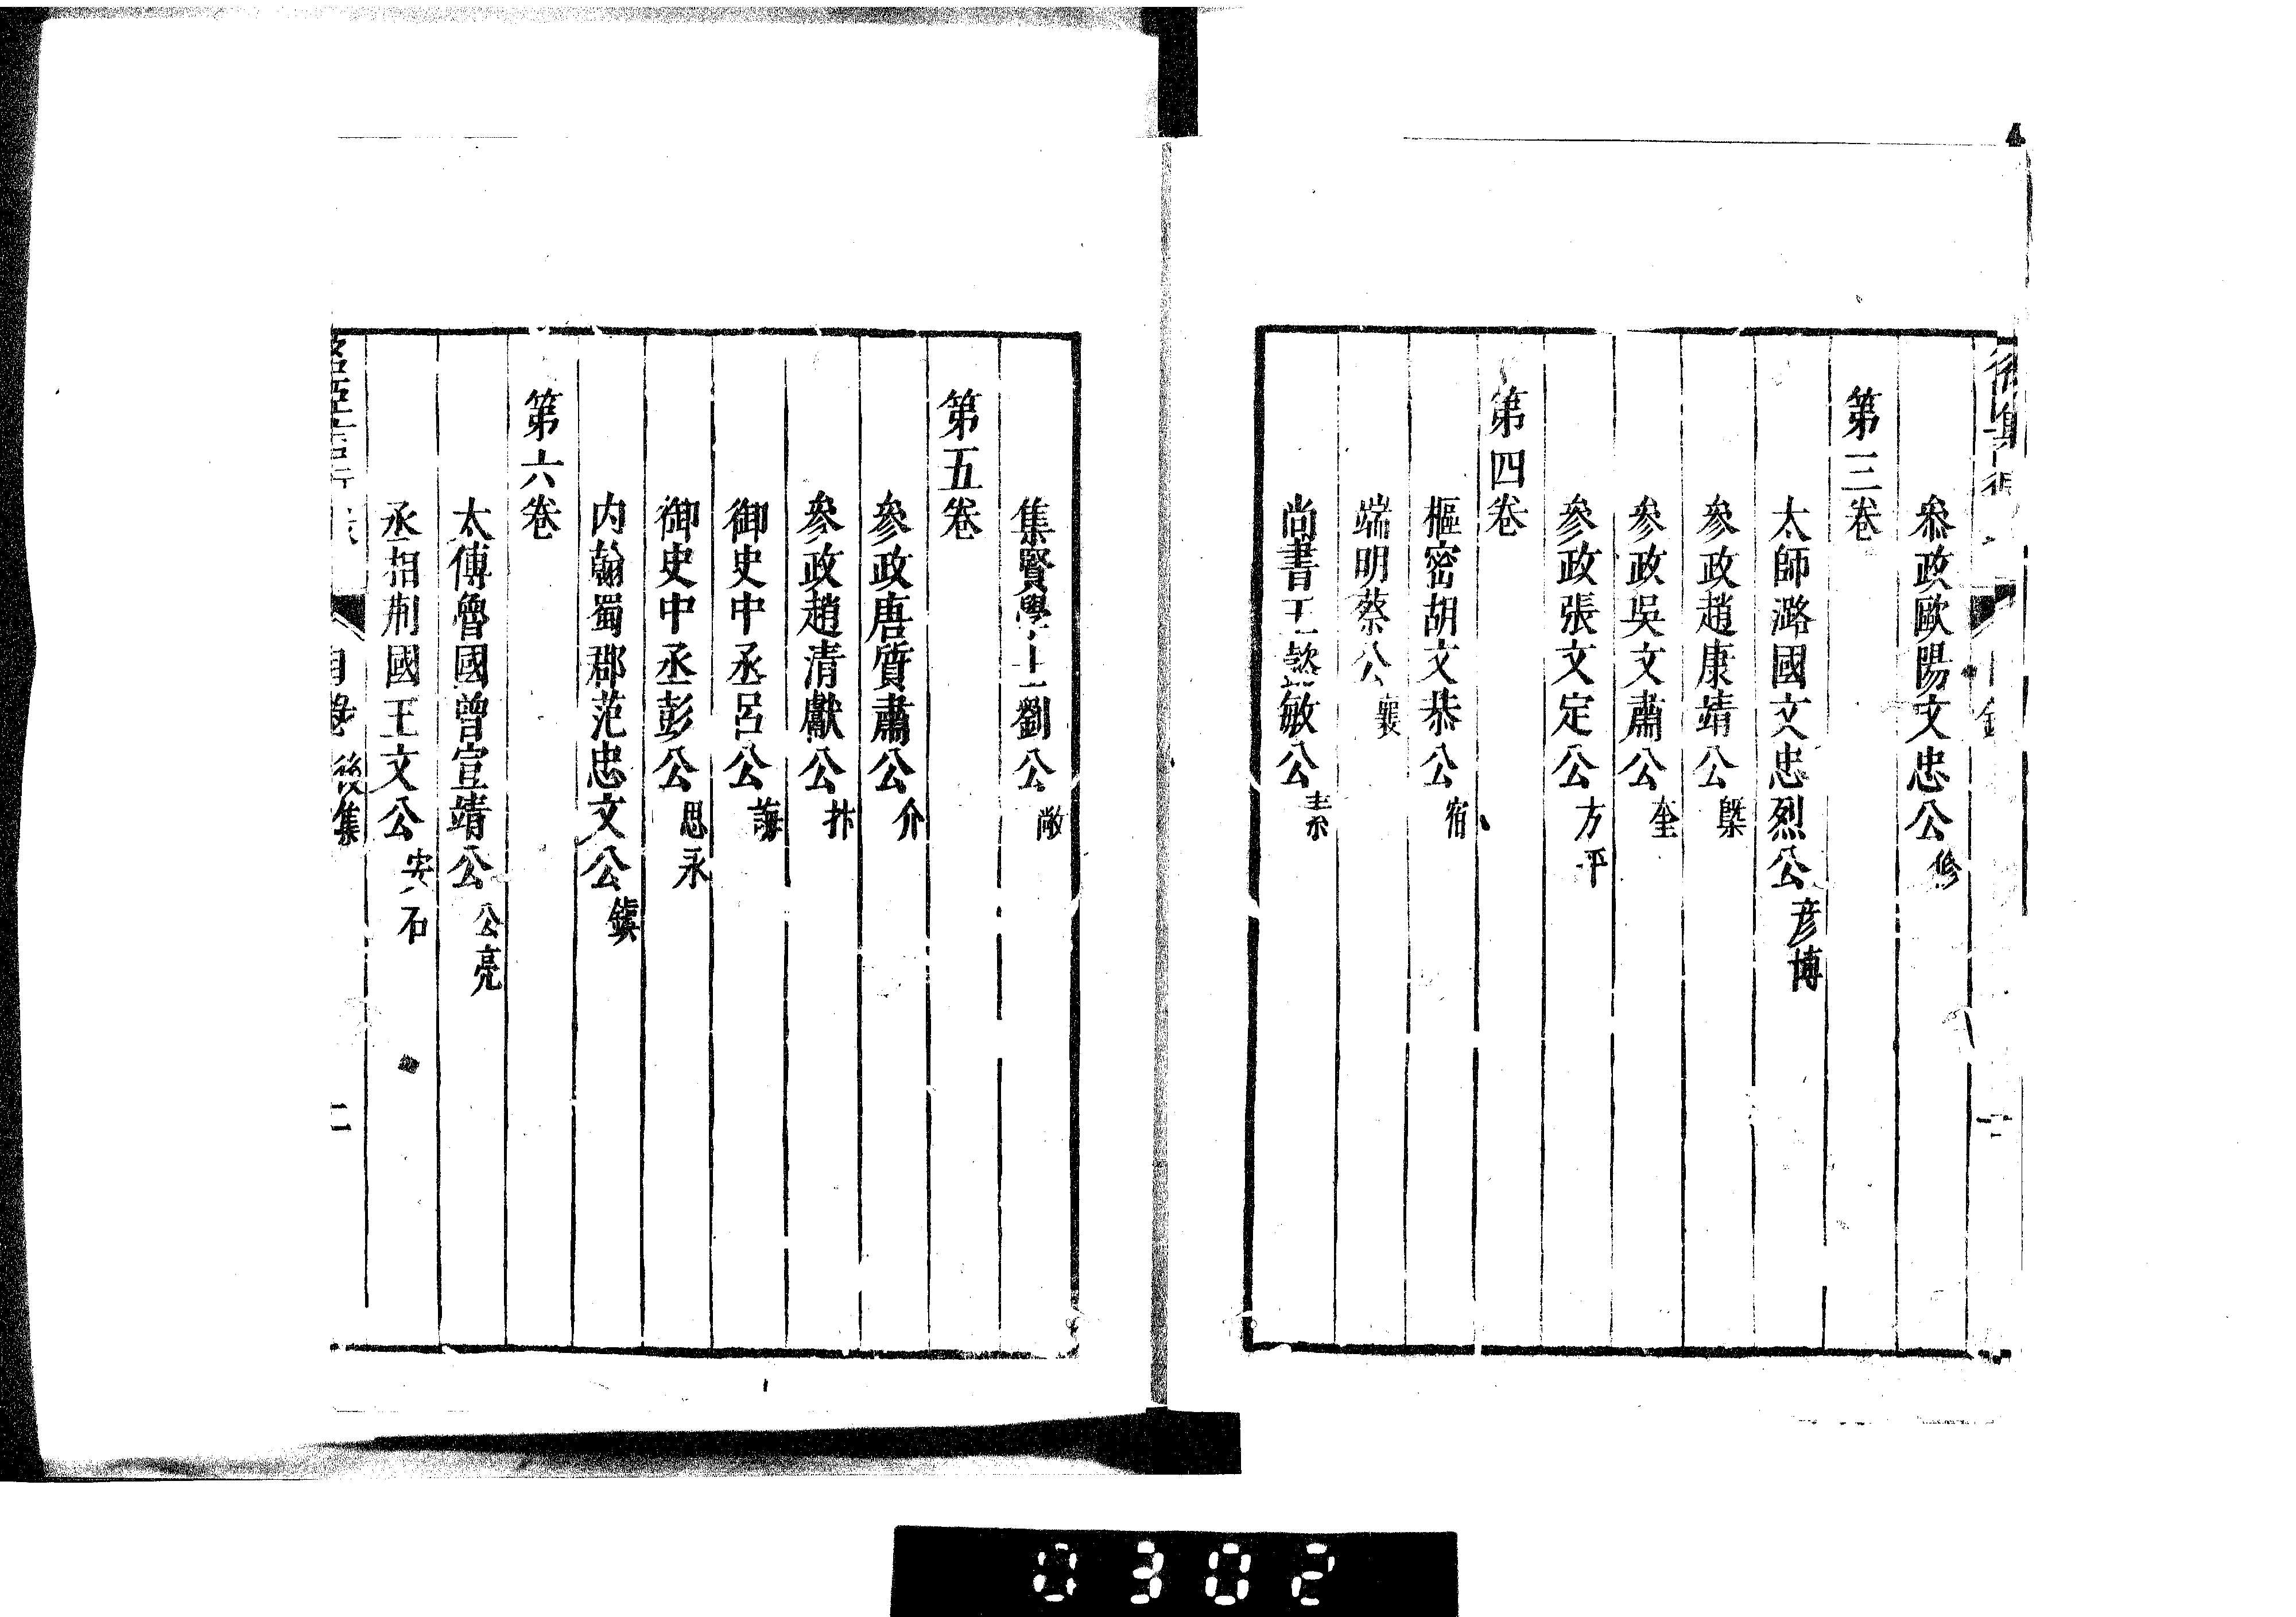 叅政歐陽文忠公修
第三卷
太師潞國文忠烈公彦博
參政趙康靖公槩
參政吳文肅公奎
參政張文定公方平
第四卷
樞密胡文恭公宿
端明蔡公襄
尚書王懿敏公素
集賢學士劉公敞
第五卷
參政唐質肅公介
參政趙清獻公抃
御史中丞呂公誨
御史中丞彭公思永
内翰蜀郡范忠文公鎮
第六卷
太傅魯國曾宣靖公公亮
丞相荆國王文公安石
後集
二
0302